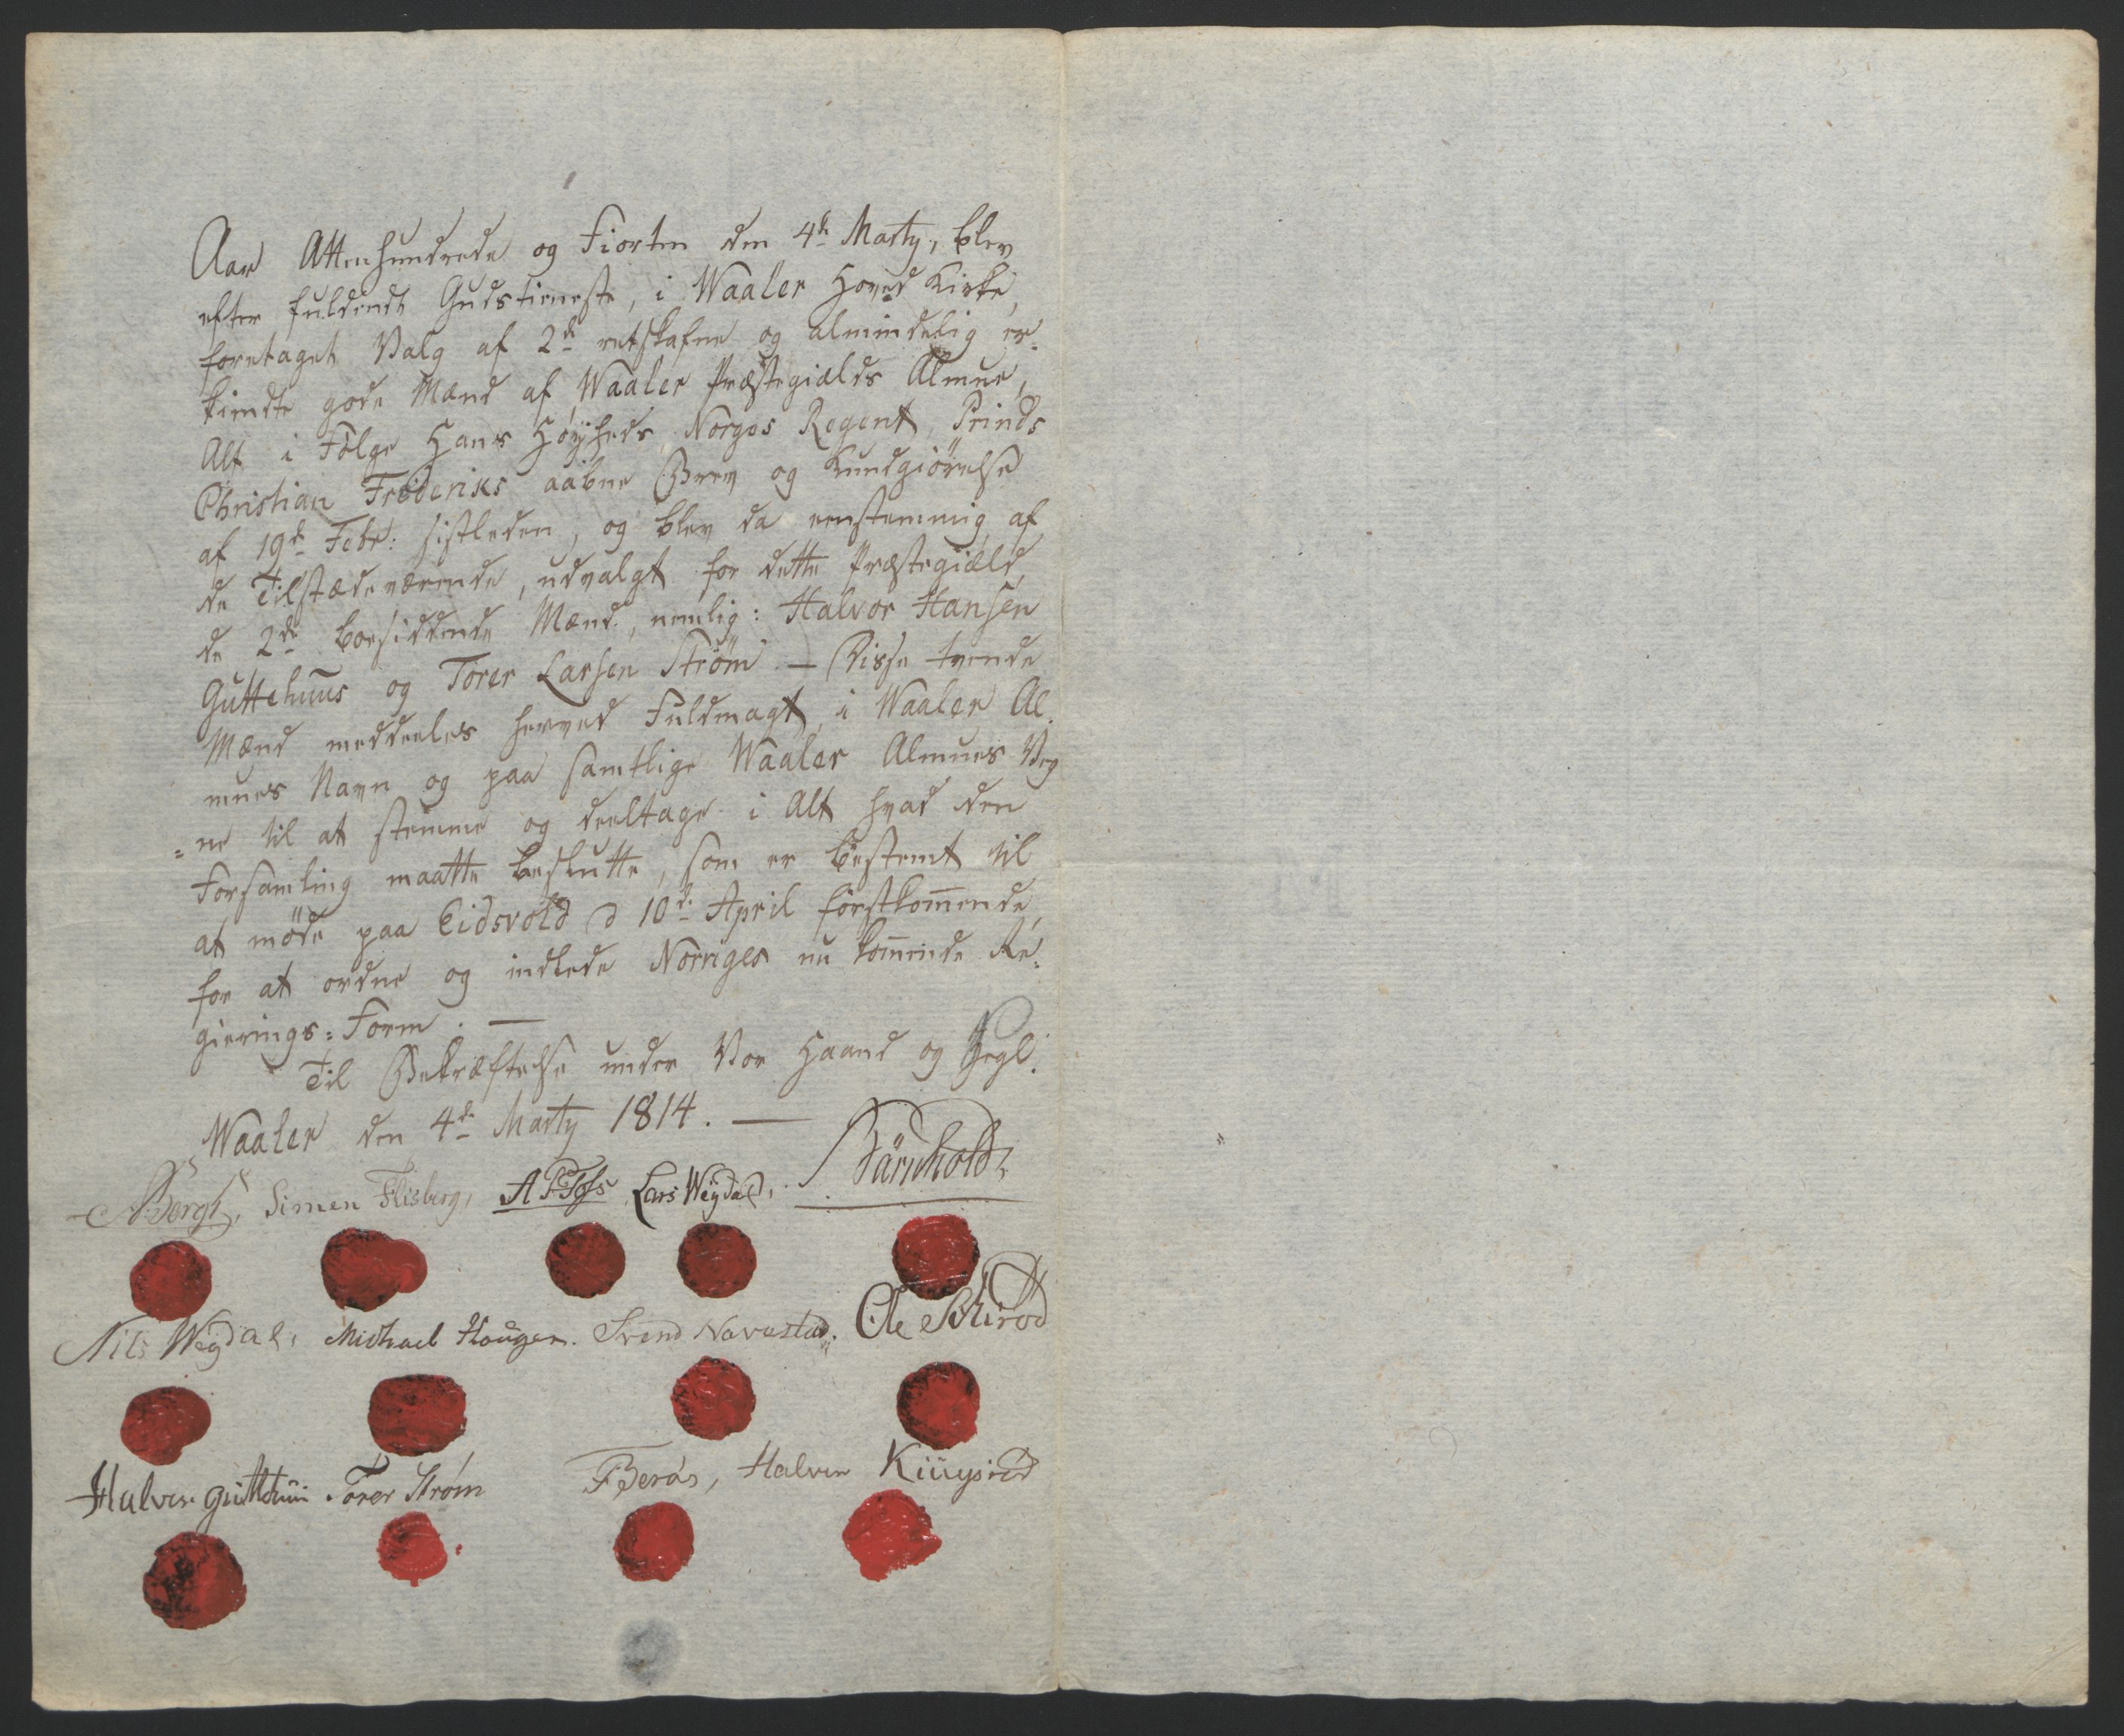 Aar Attenhundrede og Fiorten den 4de Martÿ, blev
efter fuldendt Gudstieneste, i Waaler Hoved Kirke,
foretaget Valg af 2de retskafne og almindelig er-
kiendte gode Mænd af Waaler Præstegiælds Almue,
Alt i Følge Hans Høyheds Norges Regent, Prinds
Christian Frederiks aabne Brev og Kundgiørelse
af 19de Febr: sistleden, og blev da eenstemmig af
de Tilstædeværende, udvalgt for dette Præstegiæld,
de 2de boesiddende Mænd, nemlig: Halvor Hansen
Guttehuus og Torer Larsen Strøm. — Disse tvende
Mænd meddeeles herved Fuldmagt, i Waaler Al-
mues Navn og paa samtlige Waaler Almues Veg
=ne til at stemme og deeltage i Alt hvad den
Forsamling maatte beslutte, som er bestemt til
at møde paa Eidsvold d 10de April førstkom̄ende,
for at ordne og indlede Norriges nu kom̄ende Re=
gierings=Form. —
Til Bekræftelse under Vor Haand og Segl.
Waaler den 4de Martÿ 1814. —
Simen Flisberg, Lars Weÿdal,
Nils Weÿdal, Michael Hougen. Svend Navestad. Ole
Halvor Guttehuus Torer Strøm Halvor